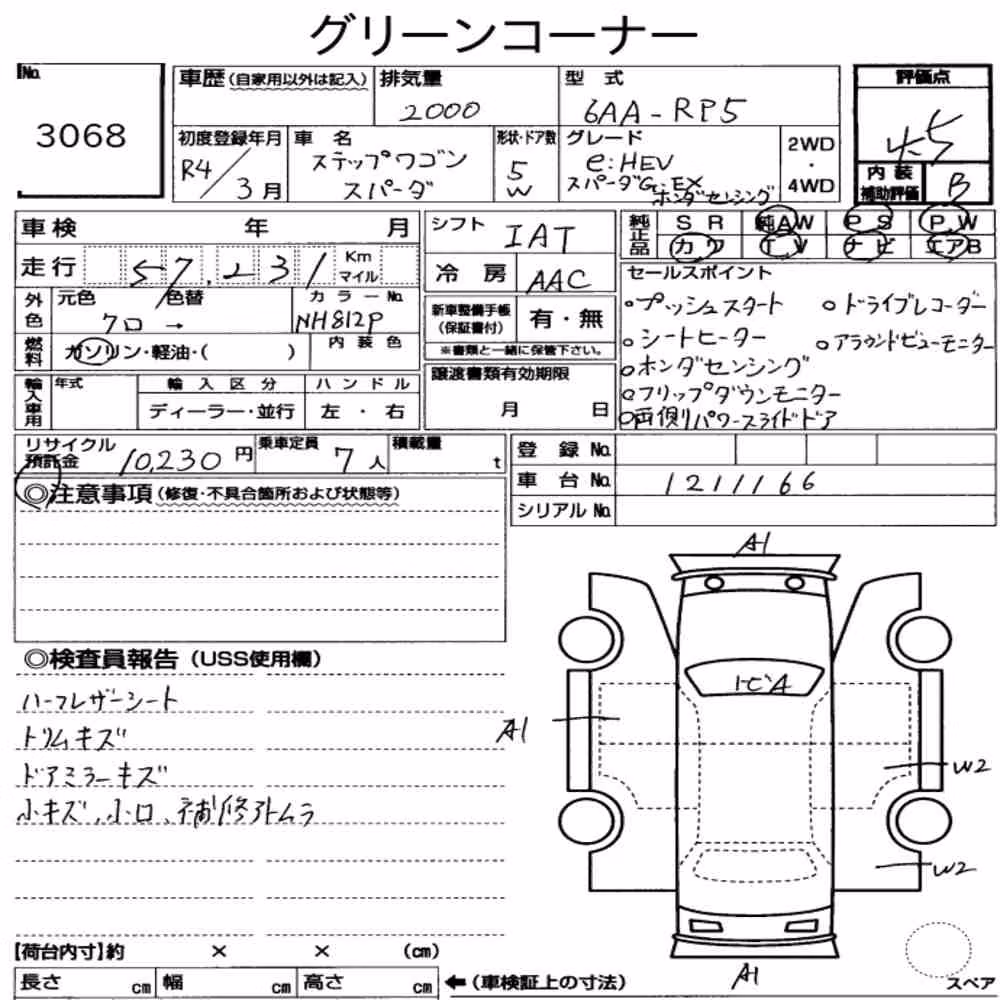 グリーンコーナー
No.
3068
車歴(自家用以外は記入)
排気量
2000
型 式
6AA-RP5
評価点
4.5
初度登録年月
R4/3月
車 名
ステップワゴン
スパーダ
形状・ドア数
5
W
グレード
e:HEV
スパーダG・EX
ホンダセンシング
2WD
・
4WD
内 装
補助評価
B
車検 年 月
シフト
IAT
純正品
SR 純AW PS P.W
カワ T.V ナビ エアB
走行 57,231 Km
マイル
冷 房
AAC
セールスポイント
プッシュスタート
ドライブレコーダー
シートヒーター
アラウンドビューモニター
ホンダセンシング
フリップダウンモニター
両側パワースライドドア
外色
元色 /色替
クロ →
カラーNo.
NH812P
新車整備手帳
(保証書付)
有・無
※書類と一緒に保管下さい。
燃料
ガソリン・軽油・( )
内 装 色
譲渡書類有効期限
月 日
輸入車用
年式
輸 入 区 分
ディーラー・並行
ハ ン ド ル
左 ・ 右
リサイクル
預託金
10,230円
乗車定員
7人
積載量
t
登 録 No.
車 台 No.
1211166
シリアル No.
◎注意事項(修復・不具合箇所および状態等)
◎検査員報告(USS使用欄)
ハーフレザーシート
トリムキズ
ドアミラーキズ
小キズ、小凹、補修跡ムラ
A1
トビA
A1
W2
W2
A1
スペア
【荷台内寸】約 × × (cm)
長さ cm 幅 cm 高さ cm
←(車検証上の寸法)